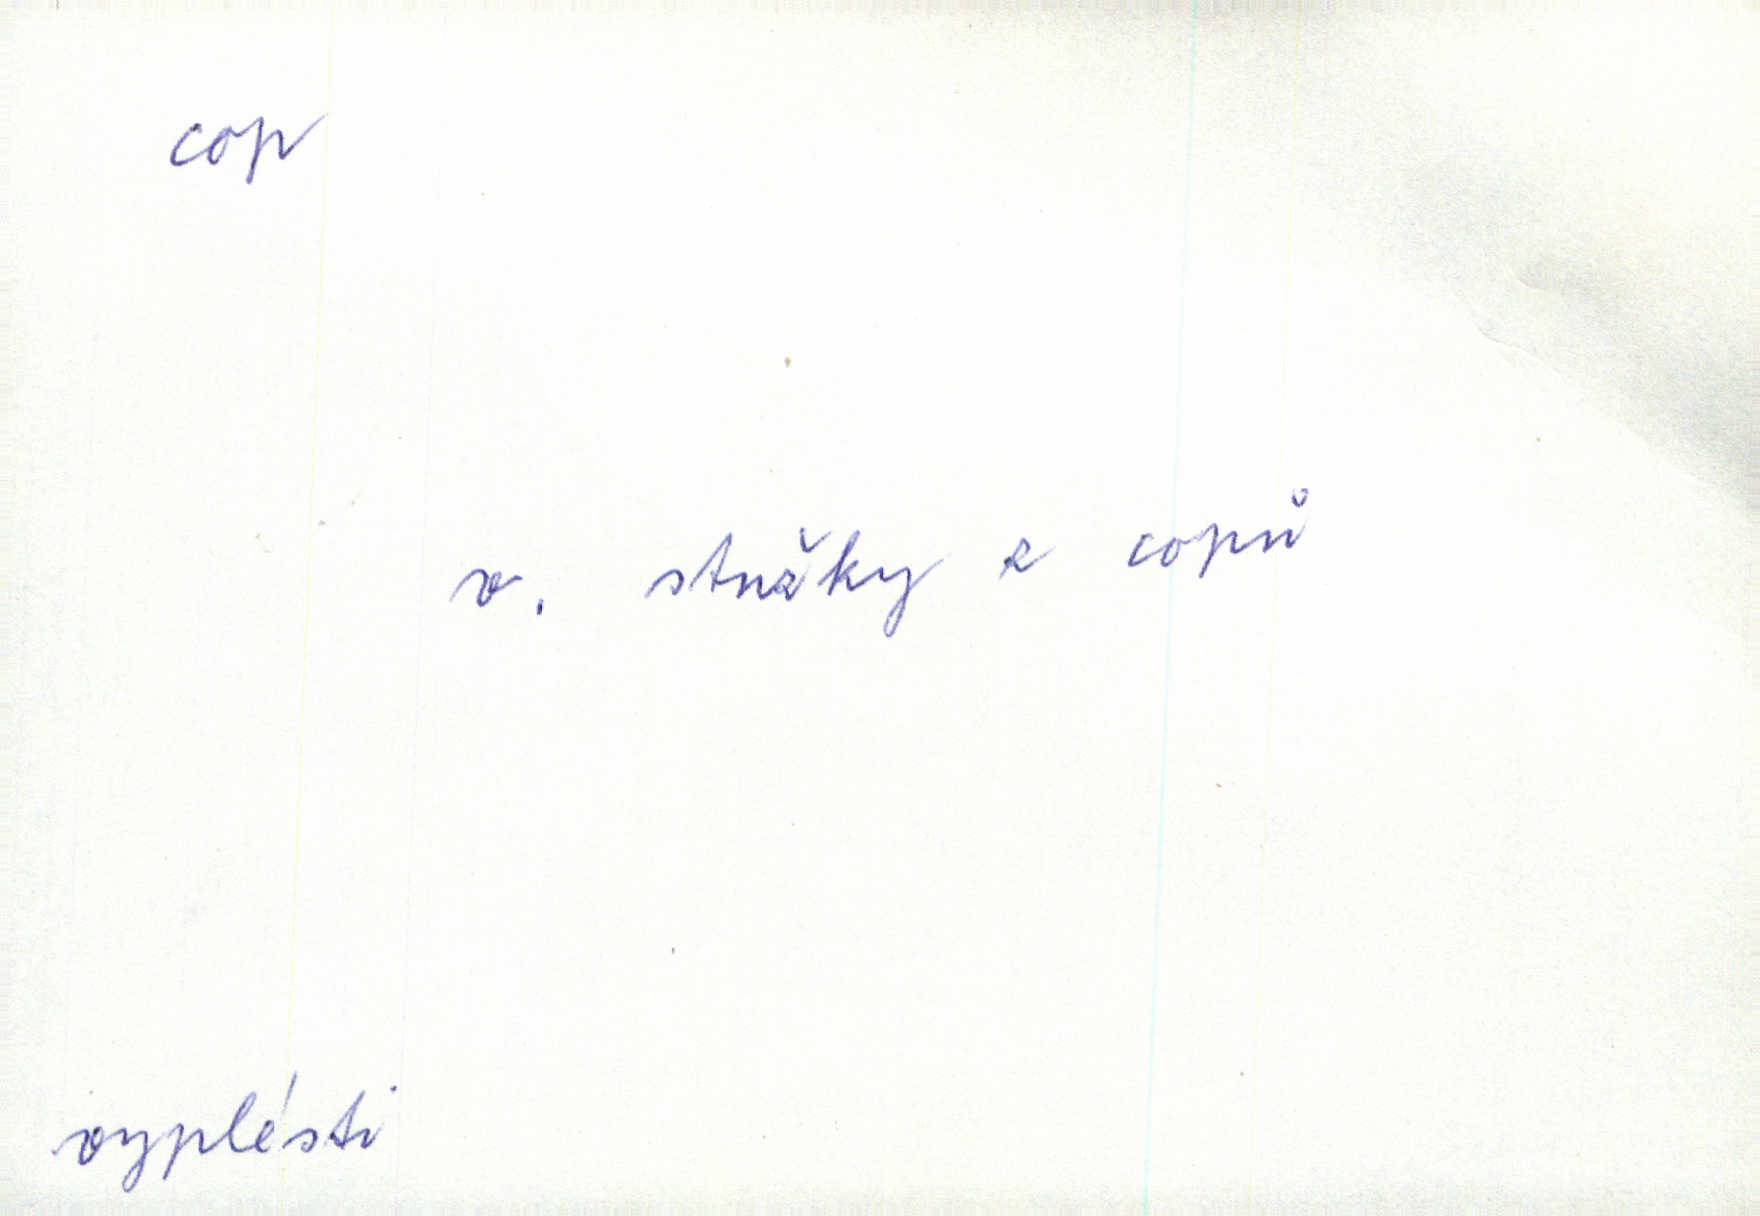 cop
v. stužky z copů
vyplésti